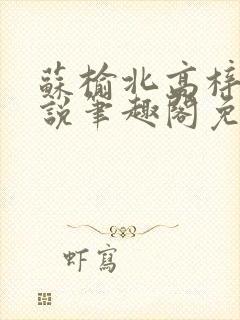 蘇榆北高梓
說筆趣閣免
虾寫